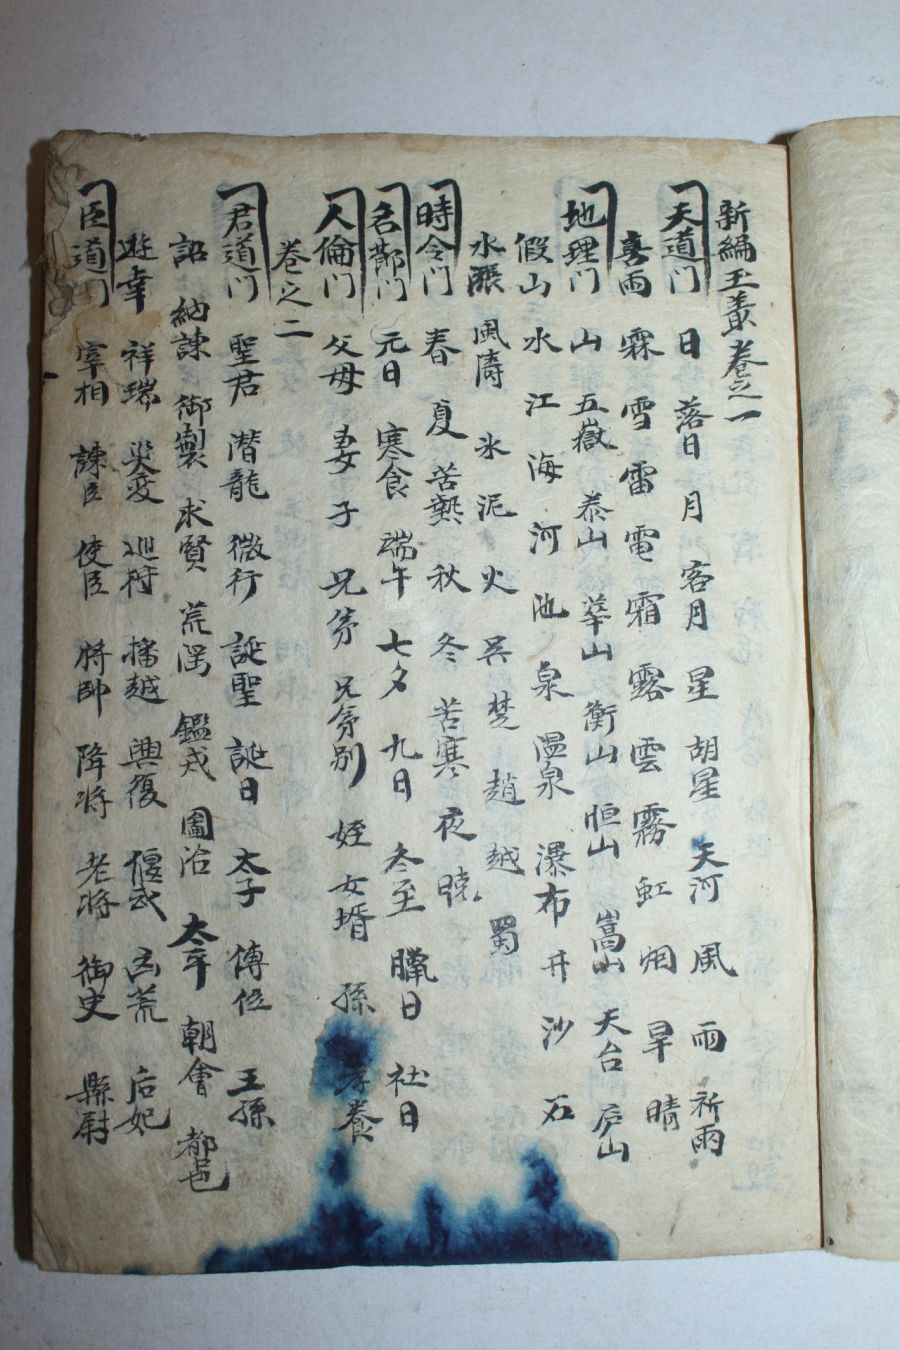 新編玉叢卷之一
天道门 日 落日 月 客月 星 胡星 天河 風 雨 祈雨
喜雨 霖 雪 雷 電 霜 露 雲 霧 虹 烟 旱 晴
地理门 山 五嶽 泰山 華山 衡山 恒山 嵩山 天台 庐山
假山 水 江 海 河 池 泉 温泉 瀑布 井 沙 石
水漲 風濤 氷 泥 火 吴 楚 趙 越 蜀
時令门 春 夏 苦熱 秋 冬 苦寒 夜 曉
名節门 元日 寒食 端午 七夕 九日 冬至 臘日 社日
人倫门 父母 妻 子 兄弟 兄弟别 姪 女壻 孫 孝養
卷之二
君道门 聖君 潜龍 微行 誕聖 誕日 太子 傳位 王孫
詔 納諫 御製 求賢 荒淫 鑑戒 圖治 太平 朝會 都邑
遊幸 祥瑞 災变 巡狩 播越 興復 偃武 凶荒 后妃
臣道门 宰相 諫臣 使臣 將帥 降将 老将 御史 縣尉